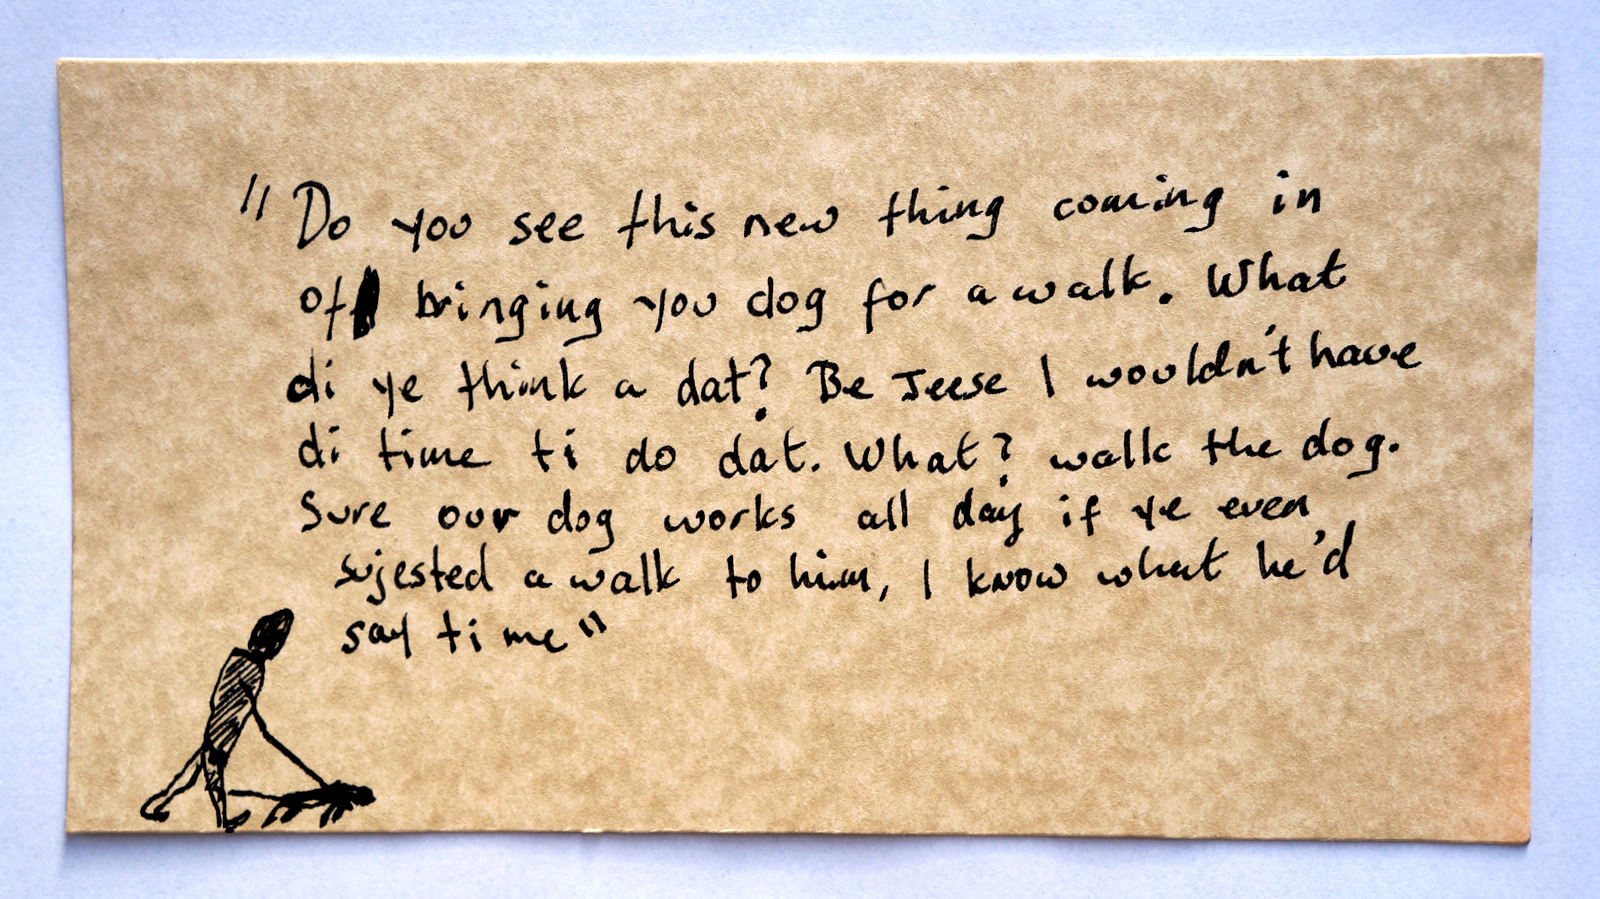 "Do you see this new thing coming in
of bringing you dog for a walk. What
di ye think a dat? Be Jeese I wouldn't have
di time ti do dat. What? walk the dog.
Sure our dog works all day if ye even
sujested a walk to him, I know what he'd
say ti me"